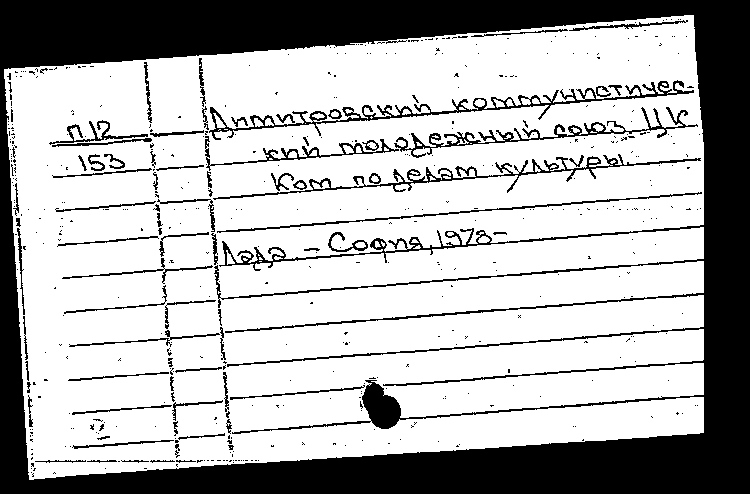 П 12
153
Димитровский коммунистичес-
кий молодежный союз. ЦК
Ком. по делам культуры.
Лада. – София, 1978–